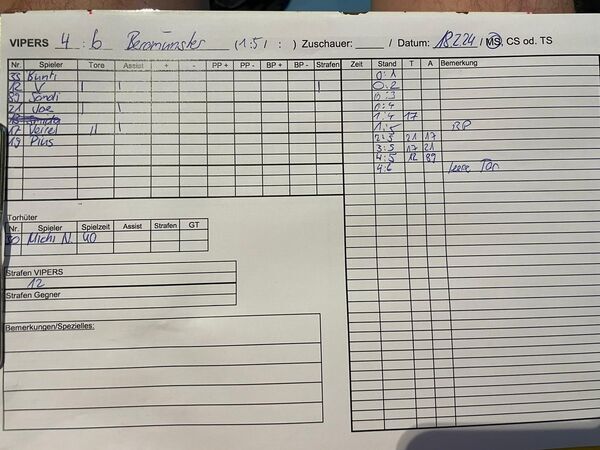 VIPERS 4 : 6 Beromünster (1:5/ : ) Zuschauer: Datum: 18.2.24 / MS, CS od. TS
Nr. Spieler Tore Assist + - PP + PP - BP + BP - Strafen
33 Bünti
12 V I I I
89 Sandi I
21 Joe I I
17 Verrel II I
19 Pius
Torhüter
Nr. Spieler Spielzeit Assist Strafen GT
30 Michi N. 40
Strafen VIPERS
12
Strafen Gegner
Bemerkungen/Spezielles:
Zeit Stand T A Bemerkung
0:1
0:2
0:3
0:4
1:4 17
1:5 BP
2:5 21 17
3:5 17 21
4:5 12 89
4:6 leere Tor